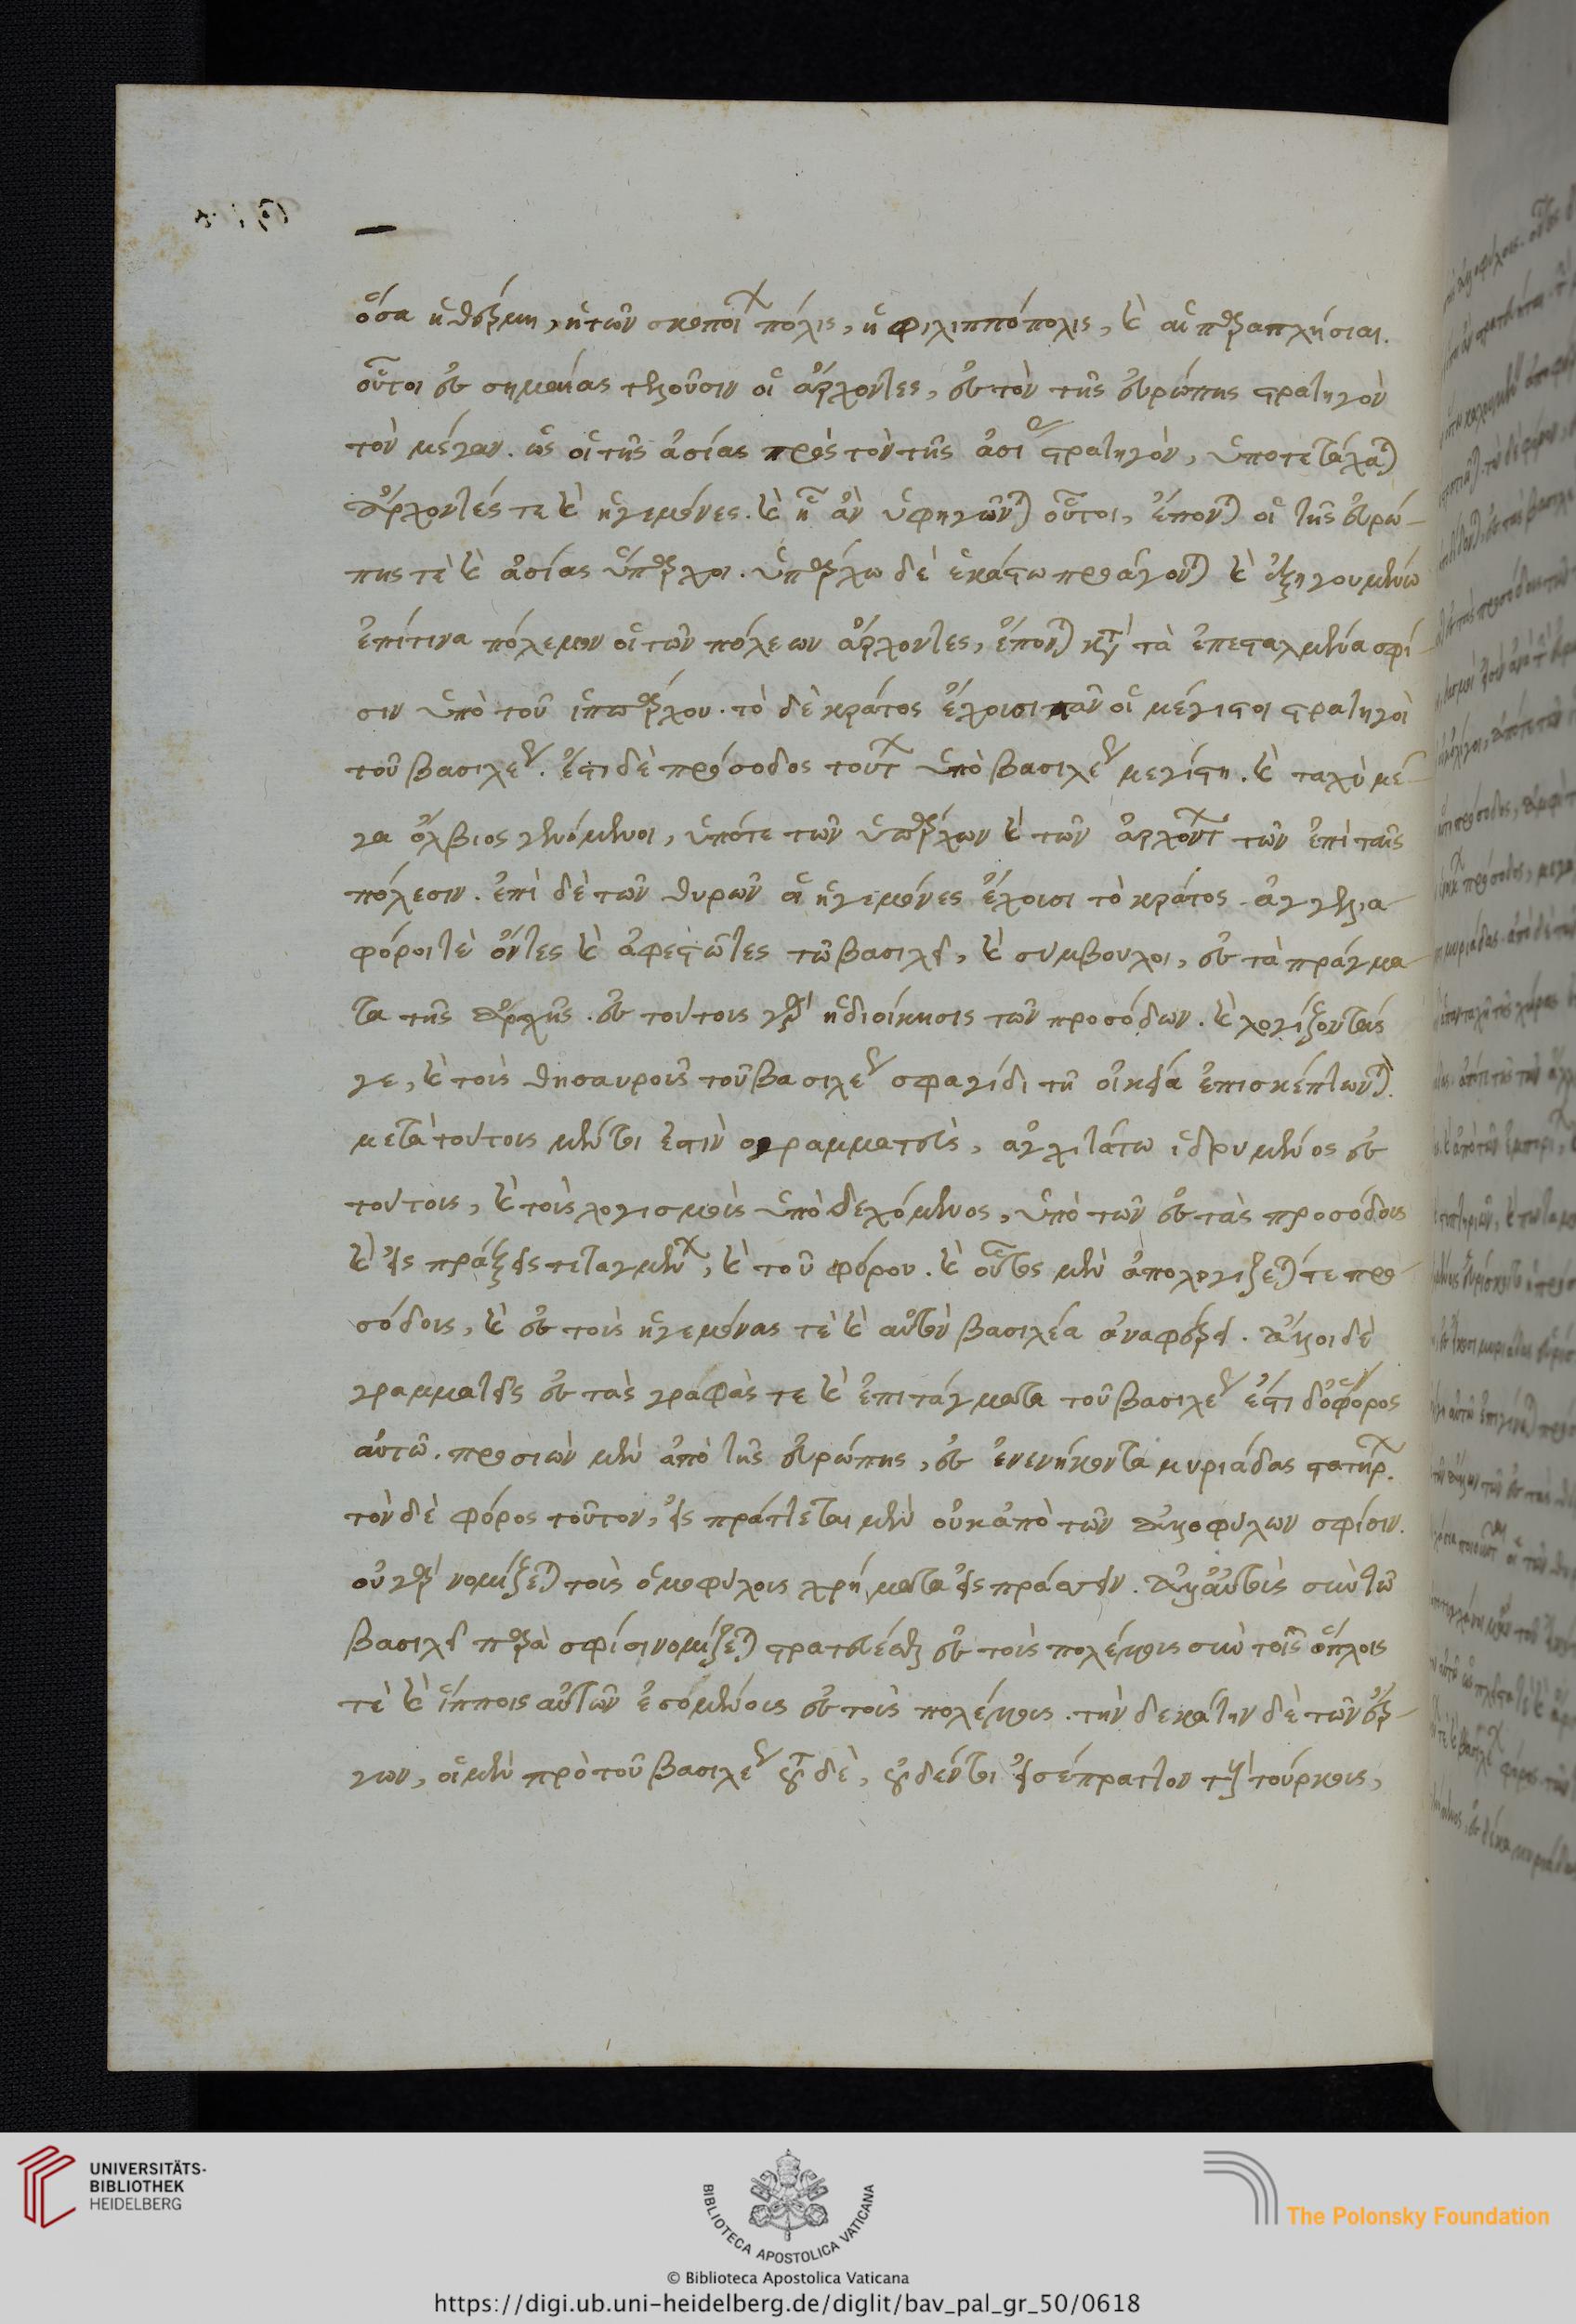 ὅσα ἡ θέρμη, ἡ τῶν σκοπίων πόλις, ἡ φιλιππόπολις, καὶ αἱ παραπλήσιαι.
οὗτοι ἐς σημαίας τελοῦσιν οἱ ἄρχοντες, ἐς τὸν τῆς εὐρώπης στρατηγὸν
τὸν μέγαν. ὡς οἱ τῆς ἀσίας πρὸς τὸν τῆς ἀσίας στρατηγὸν, ὑποτετάχαται
ἄρχοντές τε καὶ ἡγεμόνες. καὶ ᾗ ἂν ὑφηγῶνται οὗτοι, ἕπονται οἱ τῆς εὐρώ-
πης τὲ καὶ ἀσίας ὕπαρχοι. ὑπάρχω δὲ ἑκάστω προάγονται καὶ ἐξηγουμένω
ἐπίτινα πόλεμον οἱ τῶν πόλεων ἄρχοντες, ἕπονται κατὰ τὰ ἐπεσταλμένα σφί-
σιν ὑπὸ τοῦ ἱππάρχου. τὸ δὲ κράτος ἔχουσι πᾶν οἱ μέγιστοι στρατηγοὶ
τοῦ βασιλέως. ἔστι δὲ πρόσοδος τούτων ὑπὸ βασιλέως μεγίστη. καὶ ταχὺ μέ-
γα ὄλβιος γενόμενοι, ὑπότε τῶν ὑπάρχων καὶ τῶν ἀρχόντων τῶν ἐπὶ ταῖς
πόλεσιν. ἐπὶ δὲ τῶν θυρῶν οἱ ἡγεμόνες ἔχουσι τὸ κράτος ἀγγελια-
φόροι τὲ ὄντες καὶ ἀφεστῶτες τῶ βασιλεῖ, καὶ συμβουλοι, ἐς τὰ πράγμα-
τα τῆς ἀρχῆς. ἐς τούτους γὰρ ἡ διοίκησις τῶν προσόδων. καὶ λογίζονταί
γε, καὶ τοὺς θησαυροὺς τοῦ βασιλέως σφαγίδι τῆ οἰκεία ἐπισκέπτωνται.
μετὰ τούτους μέντοι ἐστὶν ὁ γραμματεὺς, ἀγχιτάτω ἱδρυμένος ἐς
τούτους, καὶ τοὺς λογισμοὺς ὑπὸ δεχόμενος, ὑπὸ τῶν ἐς τὰς προσόδους
καὶ εἰς πράξεις τεταγμένων, καὶ τοῦ φόρου. καὶ οὗτος μὲν ἀπολογίζεται τε προ-
σόδους, καὶ ἐς τοὺς ἡγεμόνας τὲ καὶ αὐτὸν βασιλέα ἀναφέρει. ἄλλοι δὲ
γραμματεῖς ἐς τὰς γραφάς τε καὶ ἐπιτάγματα τοῦ βασιλέως ἔστι δ' ὁ φόρος
αὐτῶ. προσιὼν μὲν ἀπὸ τῆς εὐρώπης, ἐς ἐνενήκοντα μυριάδας στατήρων.
τὸν δὲ φόρος τοῦτον, εἰς πράττεται μὲν οὐκ ἀπὸ τῶν ἀλλοφύλων σφίσιν.
οὐ γὰρ νομίζεται τοὺς ὁμοφύλους χρήματα εἰς πράττειν. ἀλλ' αὐτοὺς σὺν τῶ
βασιλεῖ παρὰ σφίσι νομίζεται στρατεύεσθαι ἐς τοὺς πολέμους σὺν τοῖς ὅπλοις
τὲ καὶ ἵπποις αὐτῶν ἐσομένους ἐς τοὺς πολέμους. τὴν δεκάτην δὲ τῶν ἔρ-
γων, οἱ μὲν πρὸ τοῦ βασιλέως τοῦδε, οὐδέν τι εἰσέπραττον τοὺς τούρκους,